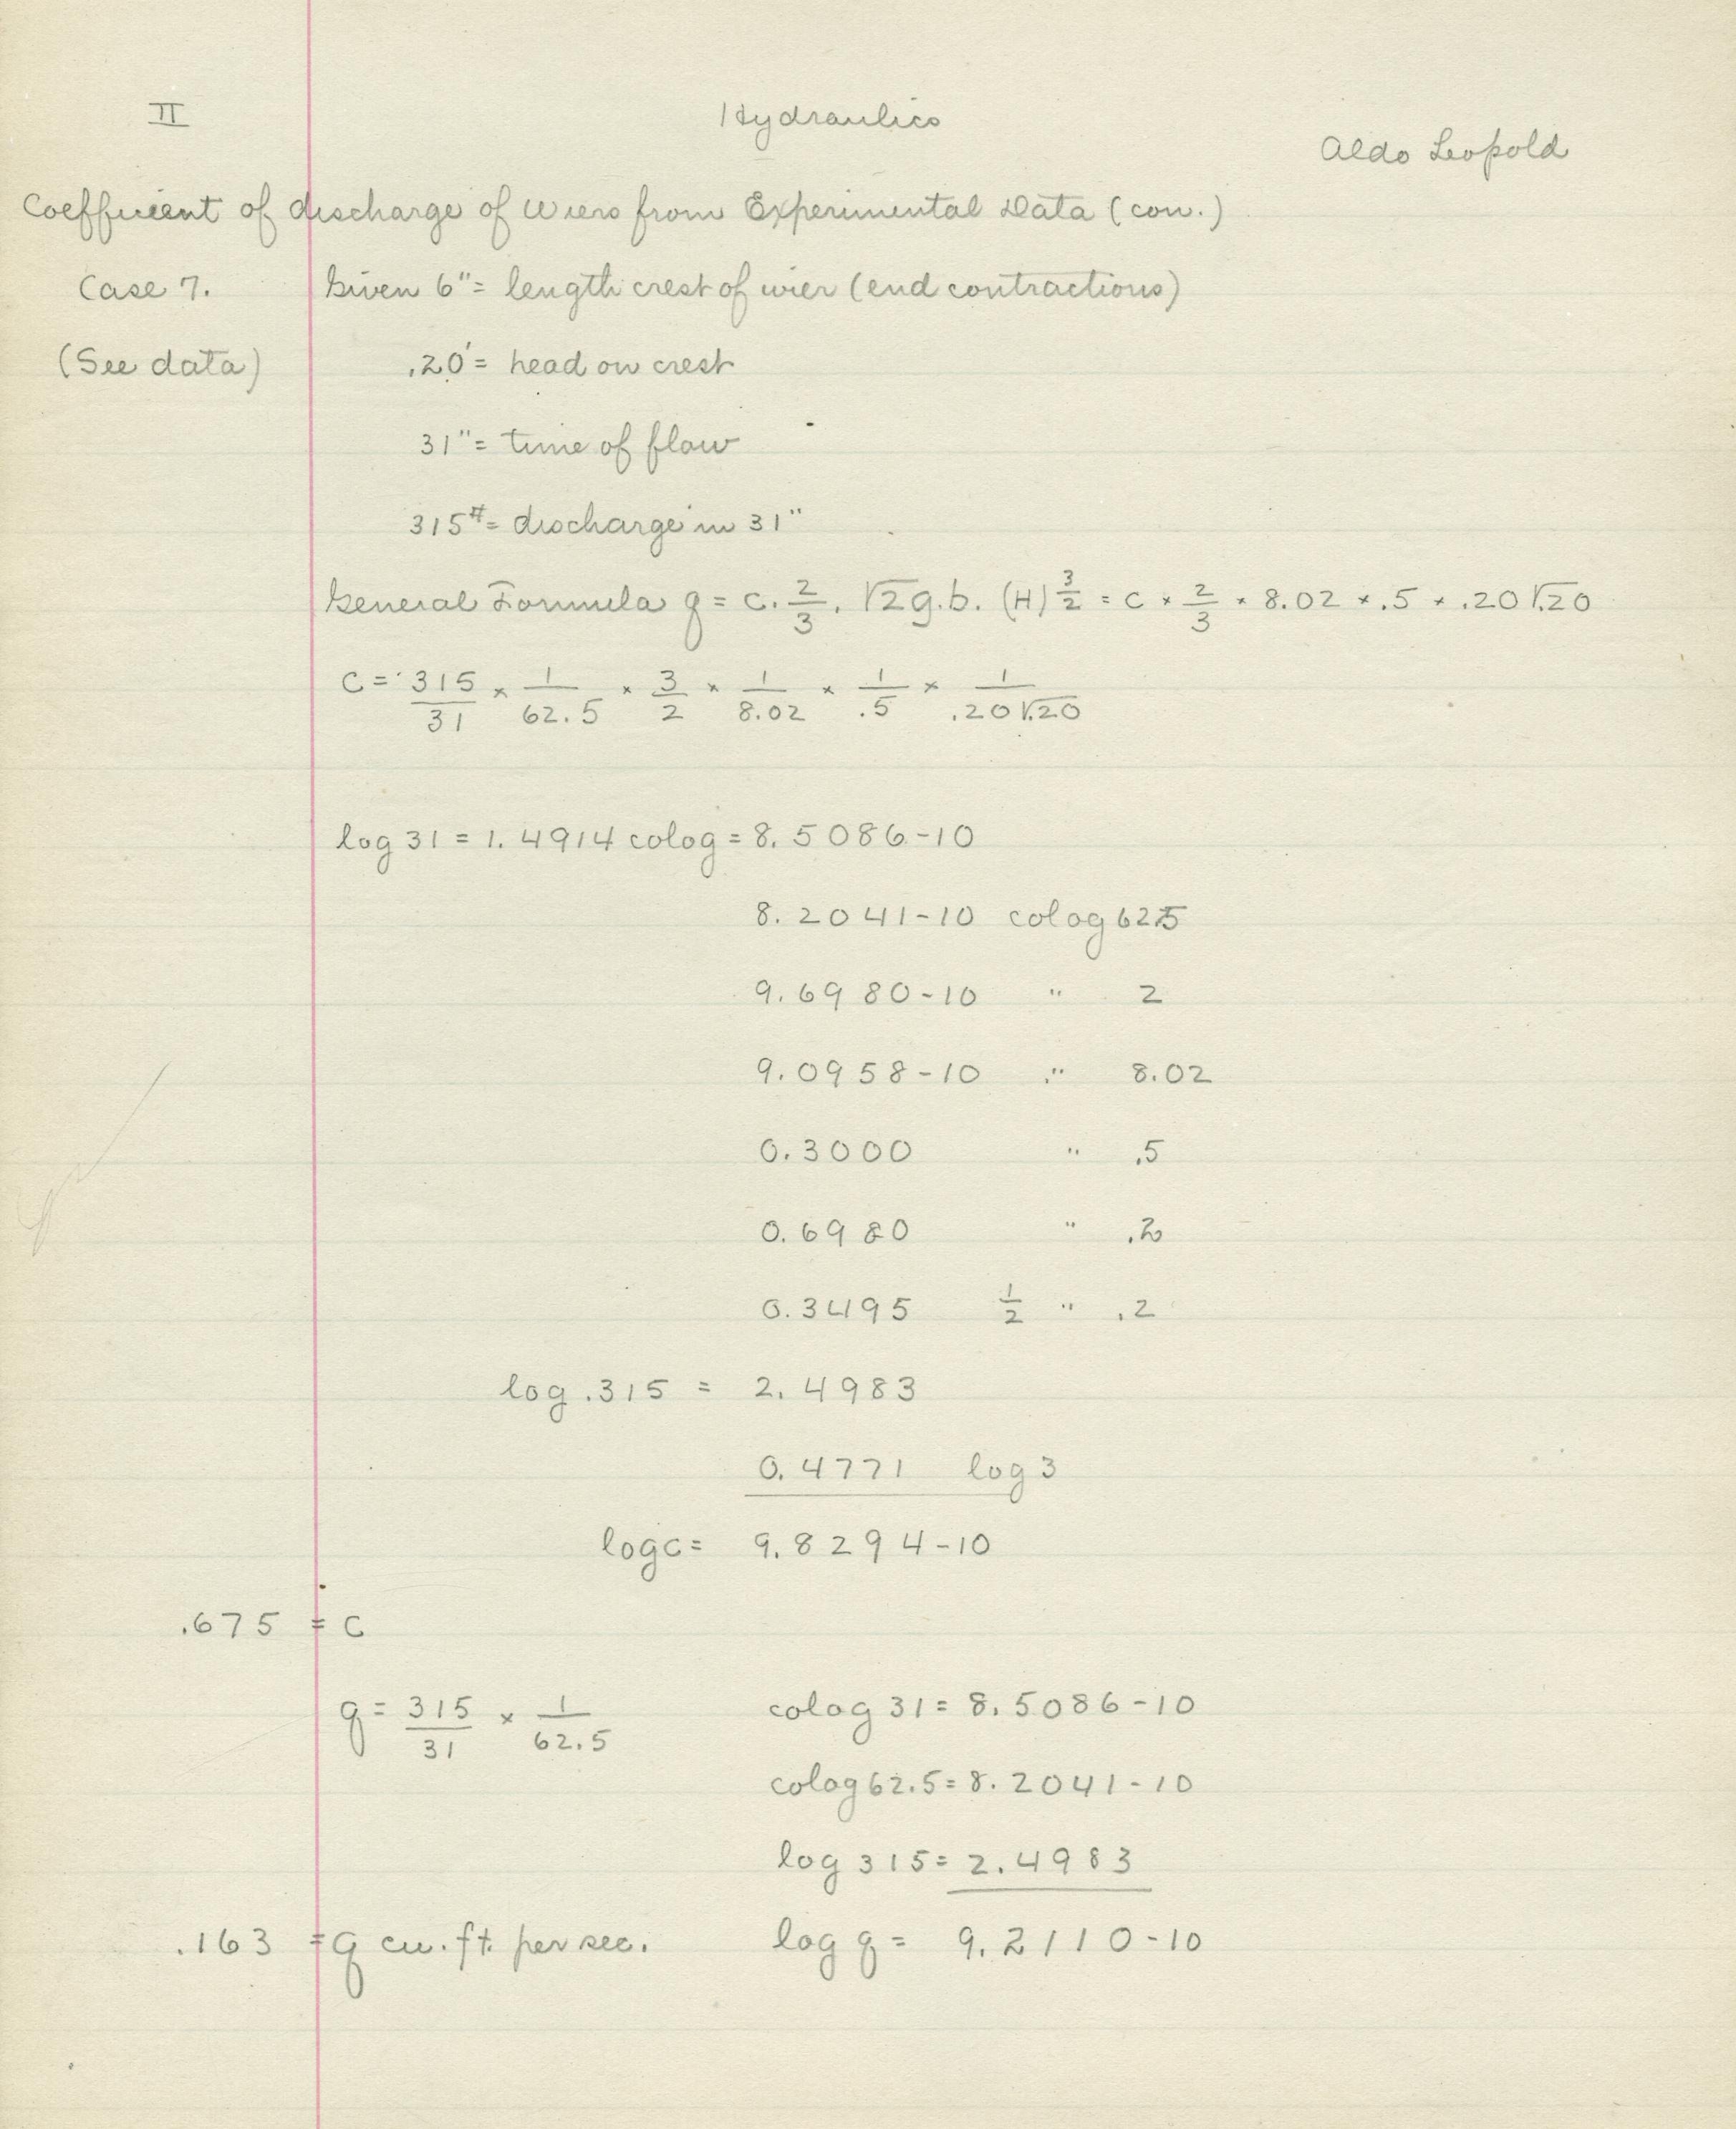 II
Hydraulics
Aldo Leopold
Coefficient of discharge of Wiers from Experimental Data (con.)
Case 7. Given 6" = length crest of wier (end contractions)
(See data) .20' = head on crest
31" = time of flow
315# = discharge in 31"
General Formula q = c. 2/3 . √2g.b. (H)^3/2 = c × 2/3 × 8.02 × .5 × .20√.20
C = 315/31 × 1/62.5 × 3/2 × 1/8.02 × 1/.5 × 1/.20√.20
log 31 = 1.4914 colog = 8.5086-10
8.2041-10 colog 62.5
9.6980-10 " 2
9.0958-10 " 8.02
0.3000 " .5
0.6980 " .2
0.3495 1/2 " .2
log .315 = 2.4983
0.4771 log 3
log c = 9.8294-10
.675 = C
q = 315/31 × 1/62.5 colog 31 = 8.5086-10
colog 62.5 = 8.2041-10
log 315 = 2.4983
.163 = q cu. ft. per sec. log q = 9.2110-10